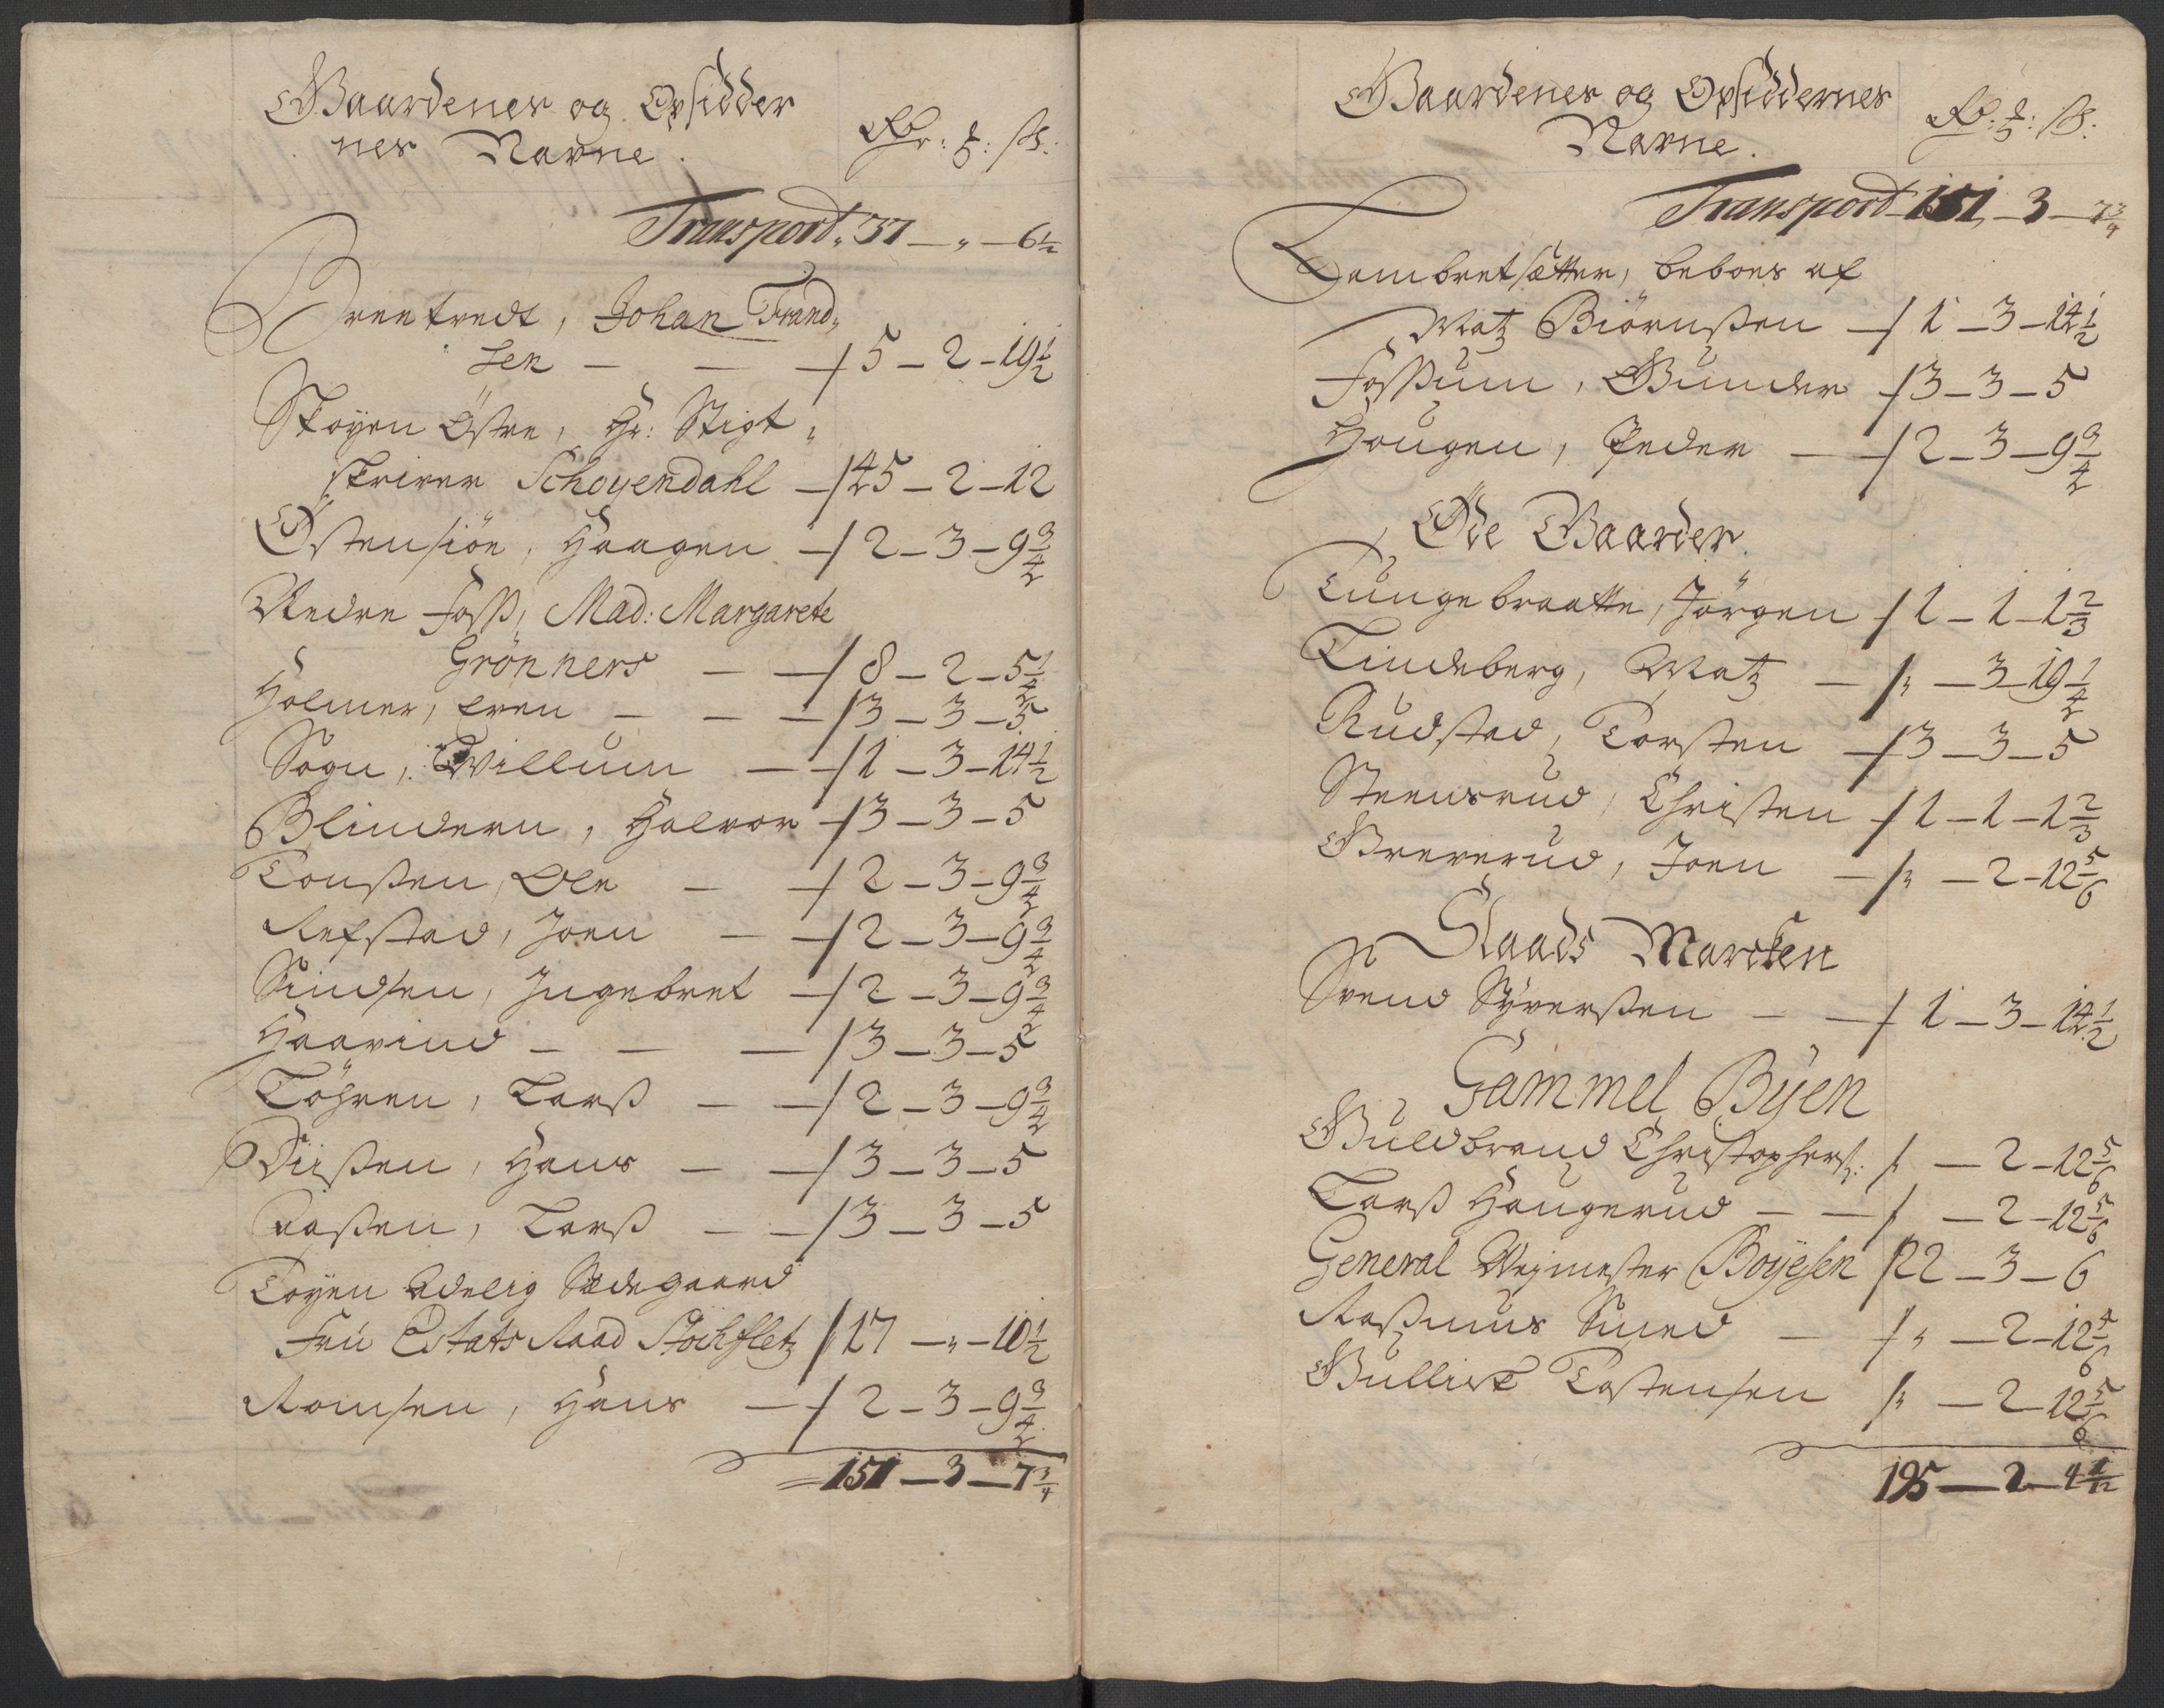 Gaardenes og Opsidder
nes Navne.
Rdr: ƶ: ß:
Transport. 37 — „ — 6 1/2
Johan Frand„
sen — — — 5 — 2 — 19 1/2
Skøyen Östre, Hr: Stigt„
skriver Schøyendahl — 45 — 2 — 12
Östensiöe, Haagen — 2 — 3 — 9 3/4
Nedre Foss, Mad: Margarete
Grönners — — 8 — 2 — 5 1/4
Holmer, Even — — — 3 — 3 — 5
Sogn, Willum — — 1 — 3 — 14 1/2
Blindern, Halvor — 3 — 3 — 5
Tonßen, Ole — — 2 — 3 — 9 3/4
Refstad, Joen — — 2 — 3 — 9 3/4
Sindsen, Ingebret — 2 — 3 — 9 3/4
Haavind — — — 3 — 3 — 5
Löhren, Larß — — 2 — 3 — 9 3/4
Diißen, Hans — — 3 — 3 — 5
Larß — — 3 — 3 — 5
Tøyen Adelig Sædegaard
Frú Estats Raad Stöckfletz 17 — „ — 10 1/2
Romsen, Hans — 2 — 3 — 9 3/4
151 — 3 — 7 3/4
Gaardenes og Opsiddernes
Navne.
Rdr: ƶ: ß:
Transport 151 — 3 — 7 3/4
Lambretsætter, beboes af
Matz Biörnßen — 1 — 3 — 14 1/2
Foßum, Gunder 3 — 3 — 5
Hougen, Peder — 2 — 3 — 9 3/4
Öde Gaarder.
Tungebraatte, Jörgen 1 — 1 — 1 2/3
Lindeberg, Matz — „ — 3 — 19 1/4
Rudstad, Torsten — 3 — 3 — 5
Steensrud, Christen 1 — 1 — 1 2/3
Greverud, Joen — „ — 2 — 12 5/6
Slaads Marcken
Svend Syverßen — — 1 — 3 — 14 1/2
Gammel Byen
Guldbrand Christophers: „ — 2 — 12 5/6
Larß Haugerud — — „ — 2 — 12 5/6
General Vejmester Boyesen 22 — 3 — 6
Raßmus Smed — „ — 2 — 12 5/6
Gullick Tostensen „ — 2 — 12 5/6
195 — 2 — 4 1/12